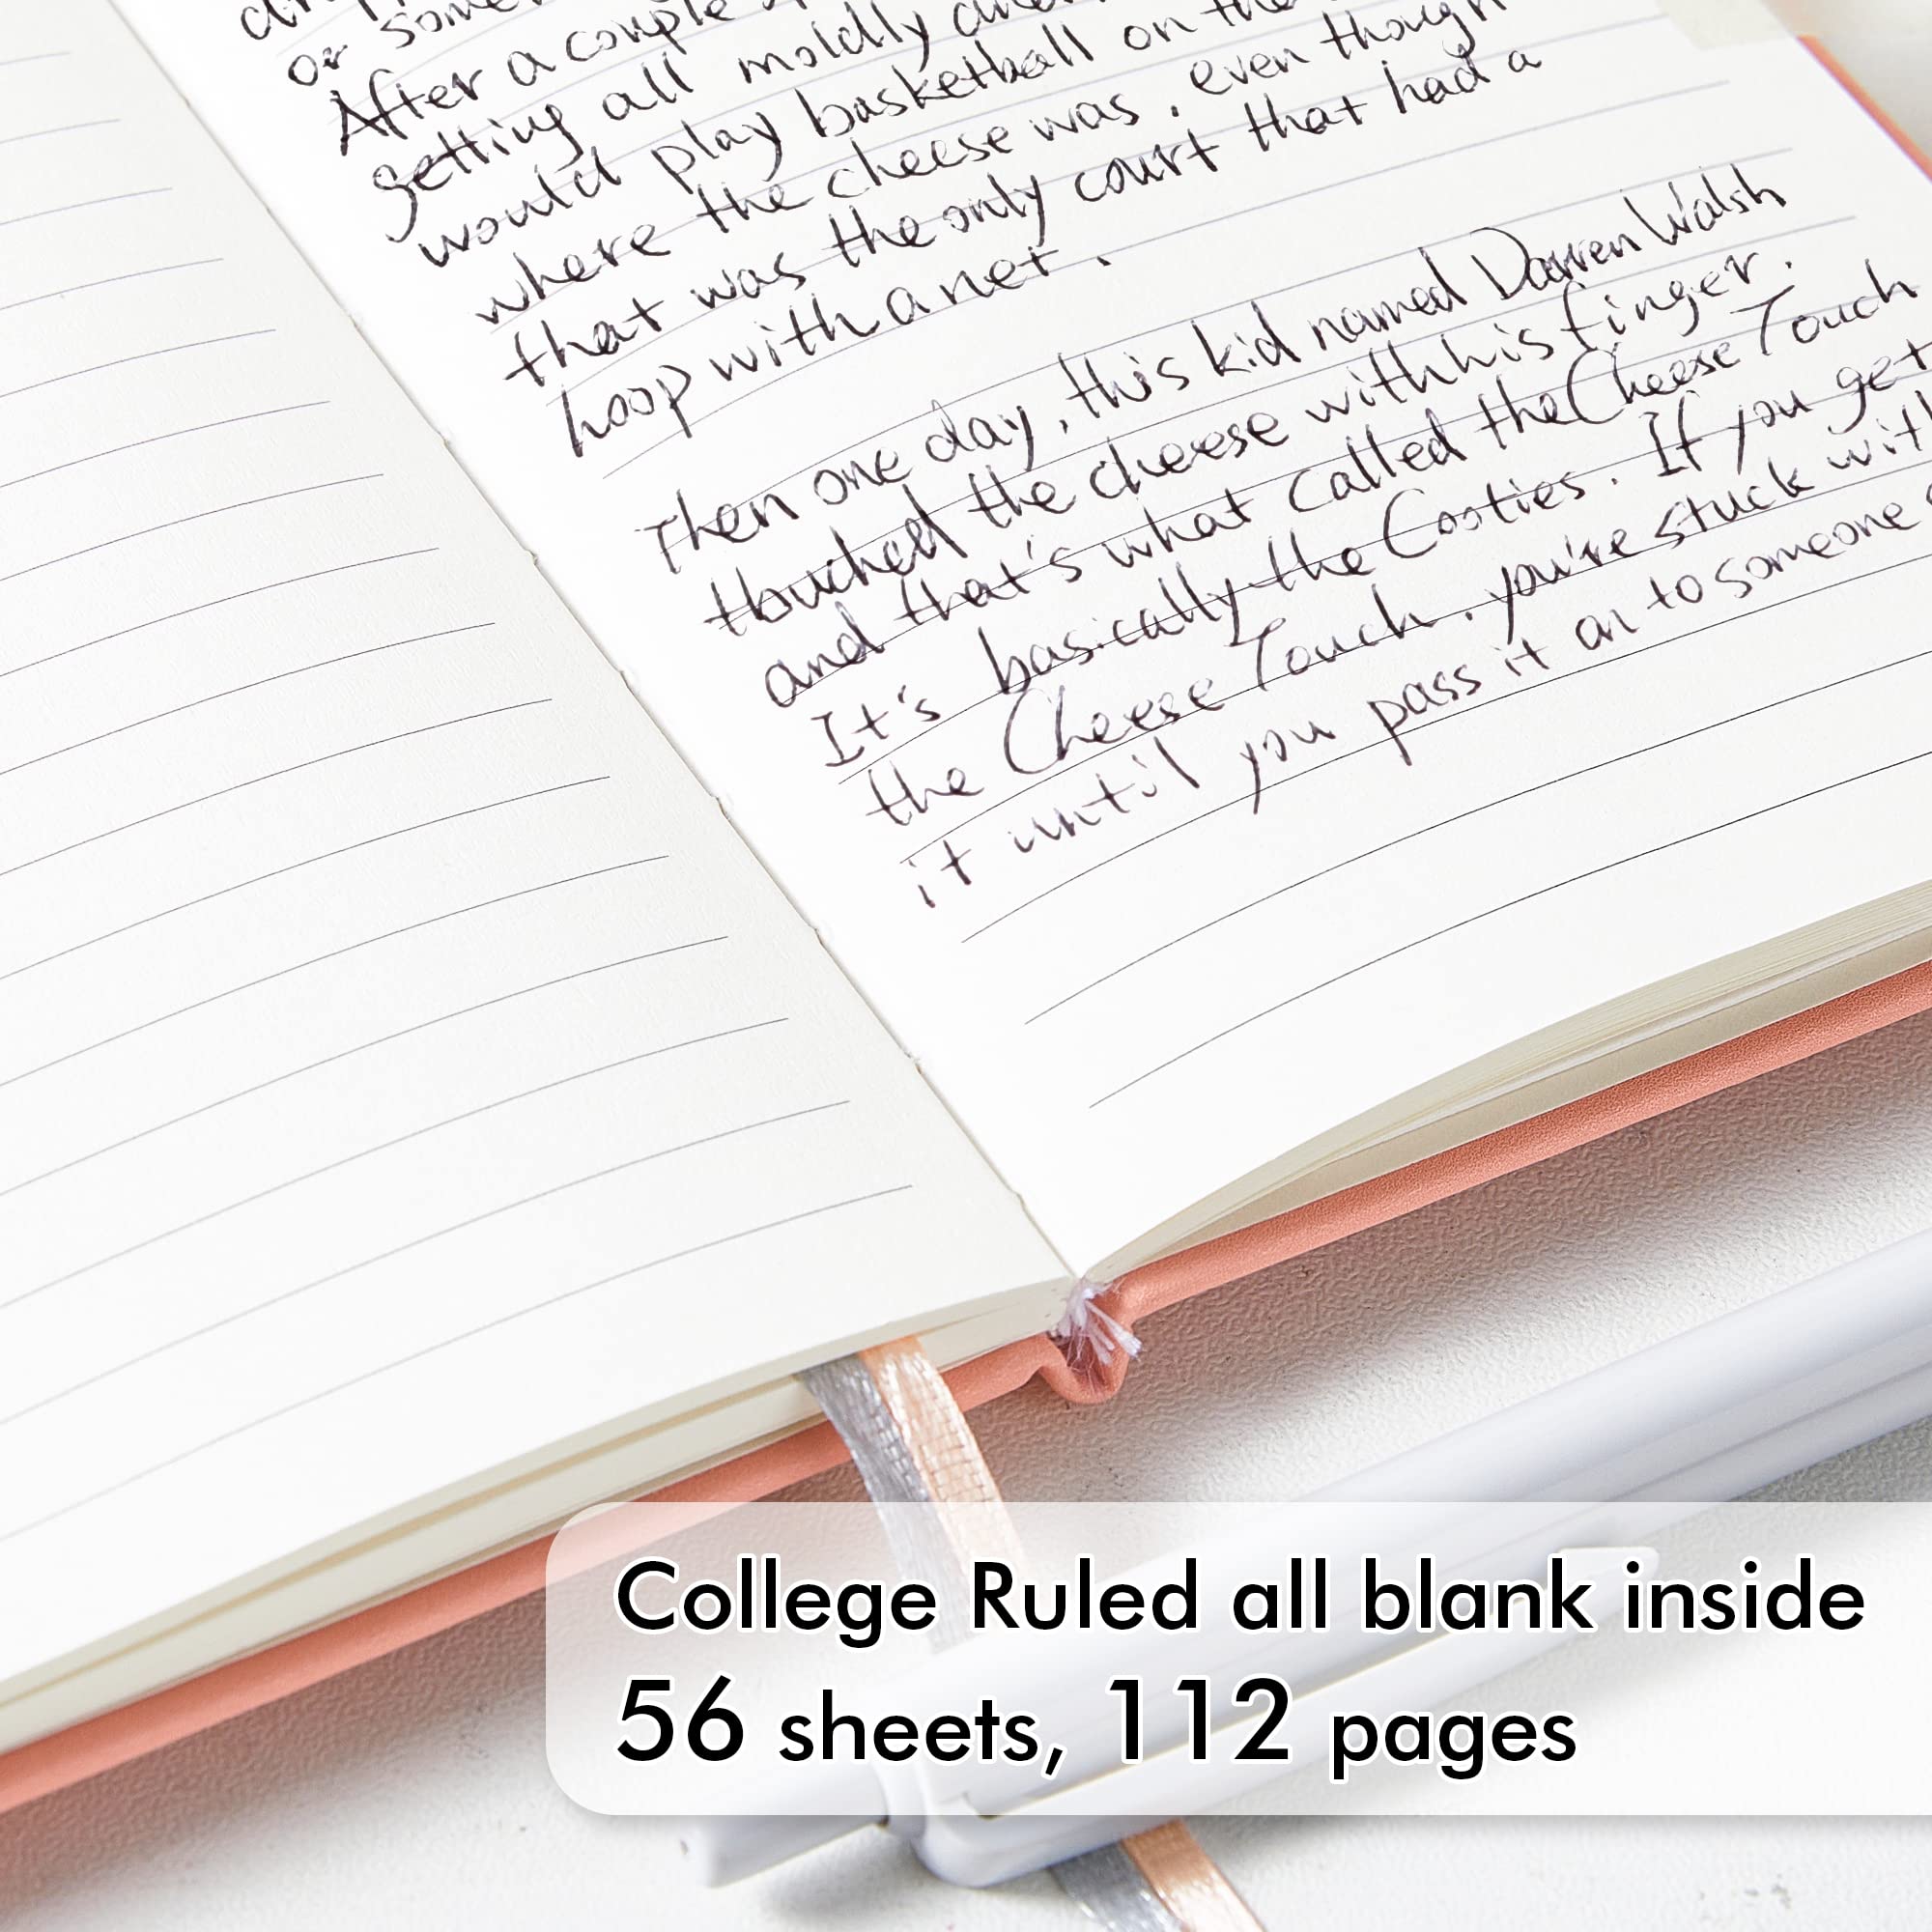 or
After a couple
getting all moldly and
would play basketball on the
where the cheese was, even though
that was the only court that had a
hoop with a net.
Then one day, this kid named Darren Walsh
thouched the cheese with his finger.
and that's what called the Cheese Touch
It's basically the Cooties. If you get
the Cheese Touch, you're stuck with
it until you pass it on to someone
College Ruled all blank inside
56 sheets, 112 pages